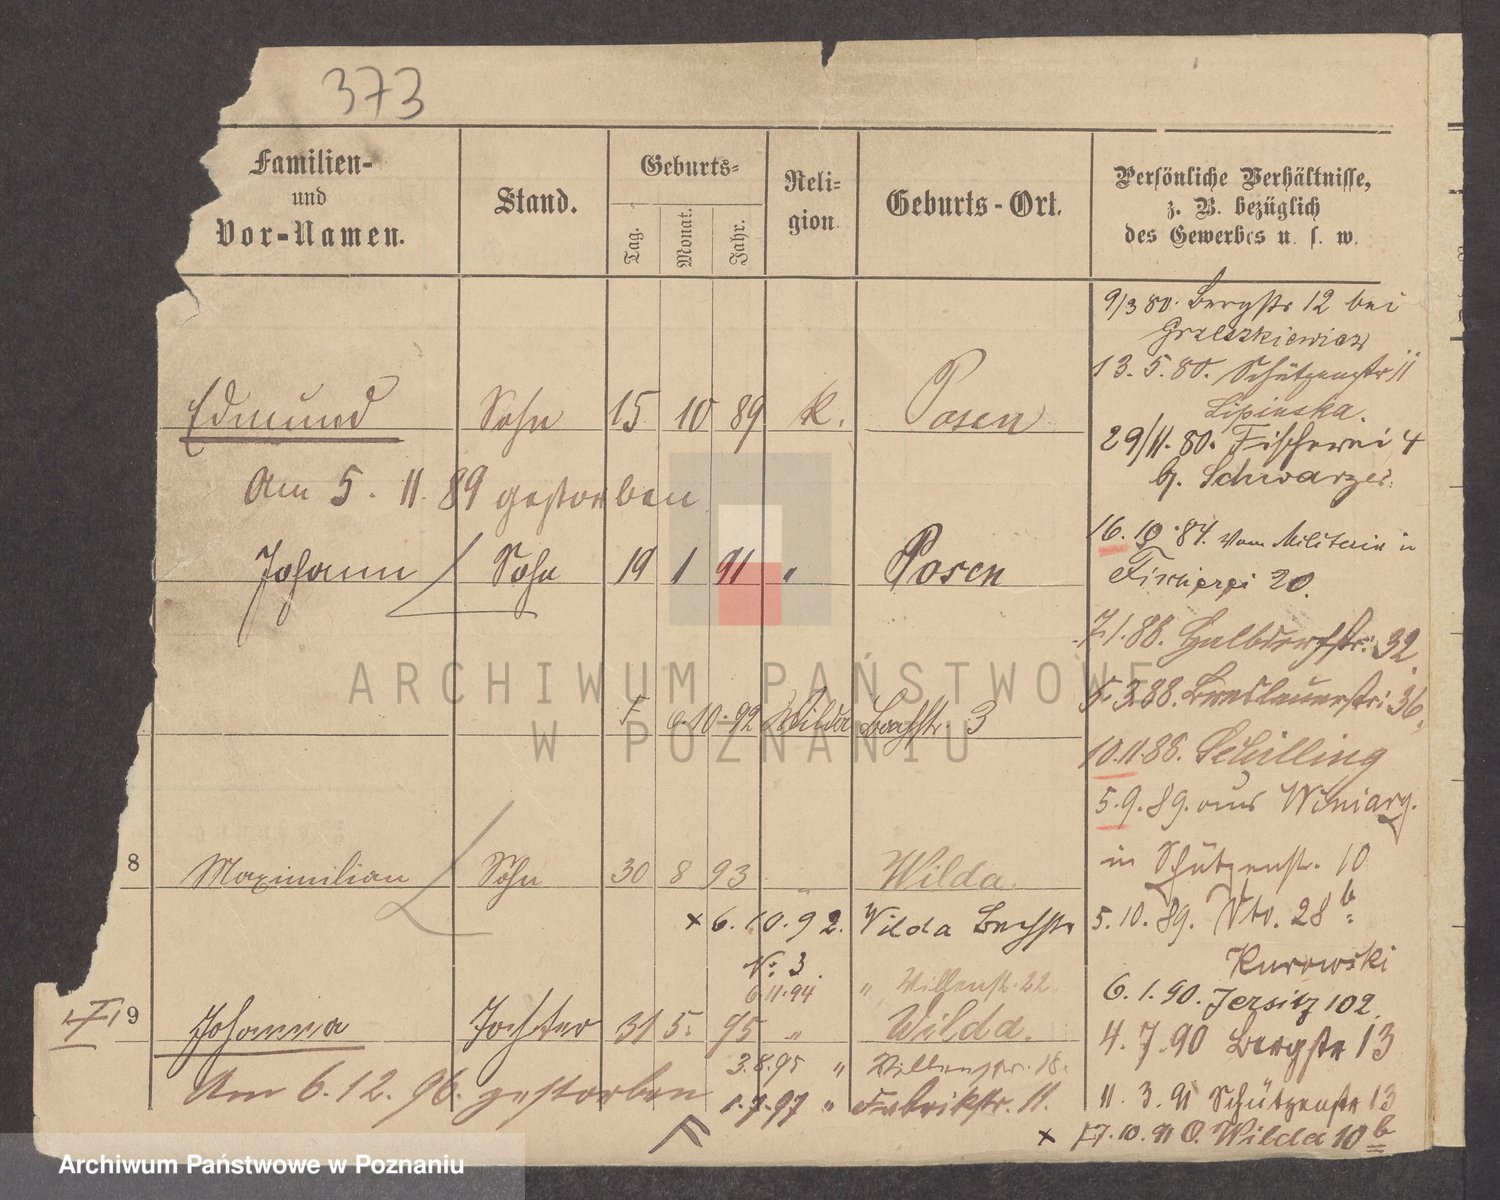 373
Familien-
und
Vor-Namen.
Stand.
Geburts-
Tag.
Monat.
Jahr.
Reli-
gion
Geburts-Ort.
Persönliche Verhältnisse,
z. B. bezüglich
des Gewerbes u. s. w.
9/3 80. Bergstr 12 bei
Grzeszkiewicz
13. 5. 80. Schützenstr 11
Lipinska.
Edmund Sohn 15 10 89 k. Posen
29/11. 80. Fischerei 4
b. Schwarzer.
Am 5. 11. 89 gestorben
16. 10. 84. vom Militair in
Johann Sohn 19 1 91 " Posen
Fischerei 20.
7.1.88. Halbdorfstr. 32.
5.3.88. Breslauerstr. 36,
6.10.92 Wilda Bachstr. 3
10.11.88. Schilling
5.9.89. aus Winiary.
8 Maximilian Sohn 30 8 93 " Wilda.
in Schützenstr. 10
x 6.10.92. Wilda Bachstr
No 3.
5.10.89. 28 b.
Kurowski
6.11.94 " 22
6.1.90. Jersitz 102.
19 Johanna Tochter 31 5. 95 " Wilda.
4.7.90 Bergstr 13
3.8.95 " 18.
Am 6.12.96. gestorben
1.7.97 " Fabrikstr. 11.
11.3.91 Schützenstr 13
x 17.10.91 O. Wilda 10 b
ARCHIWUM PAŃSTWOWE
W POZNANIU
Archiwum Państwowe w Poznaniu